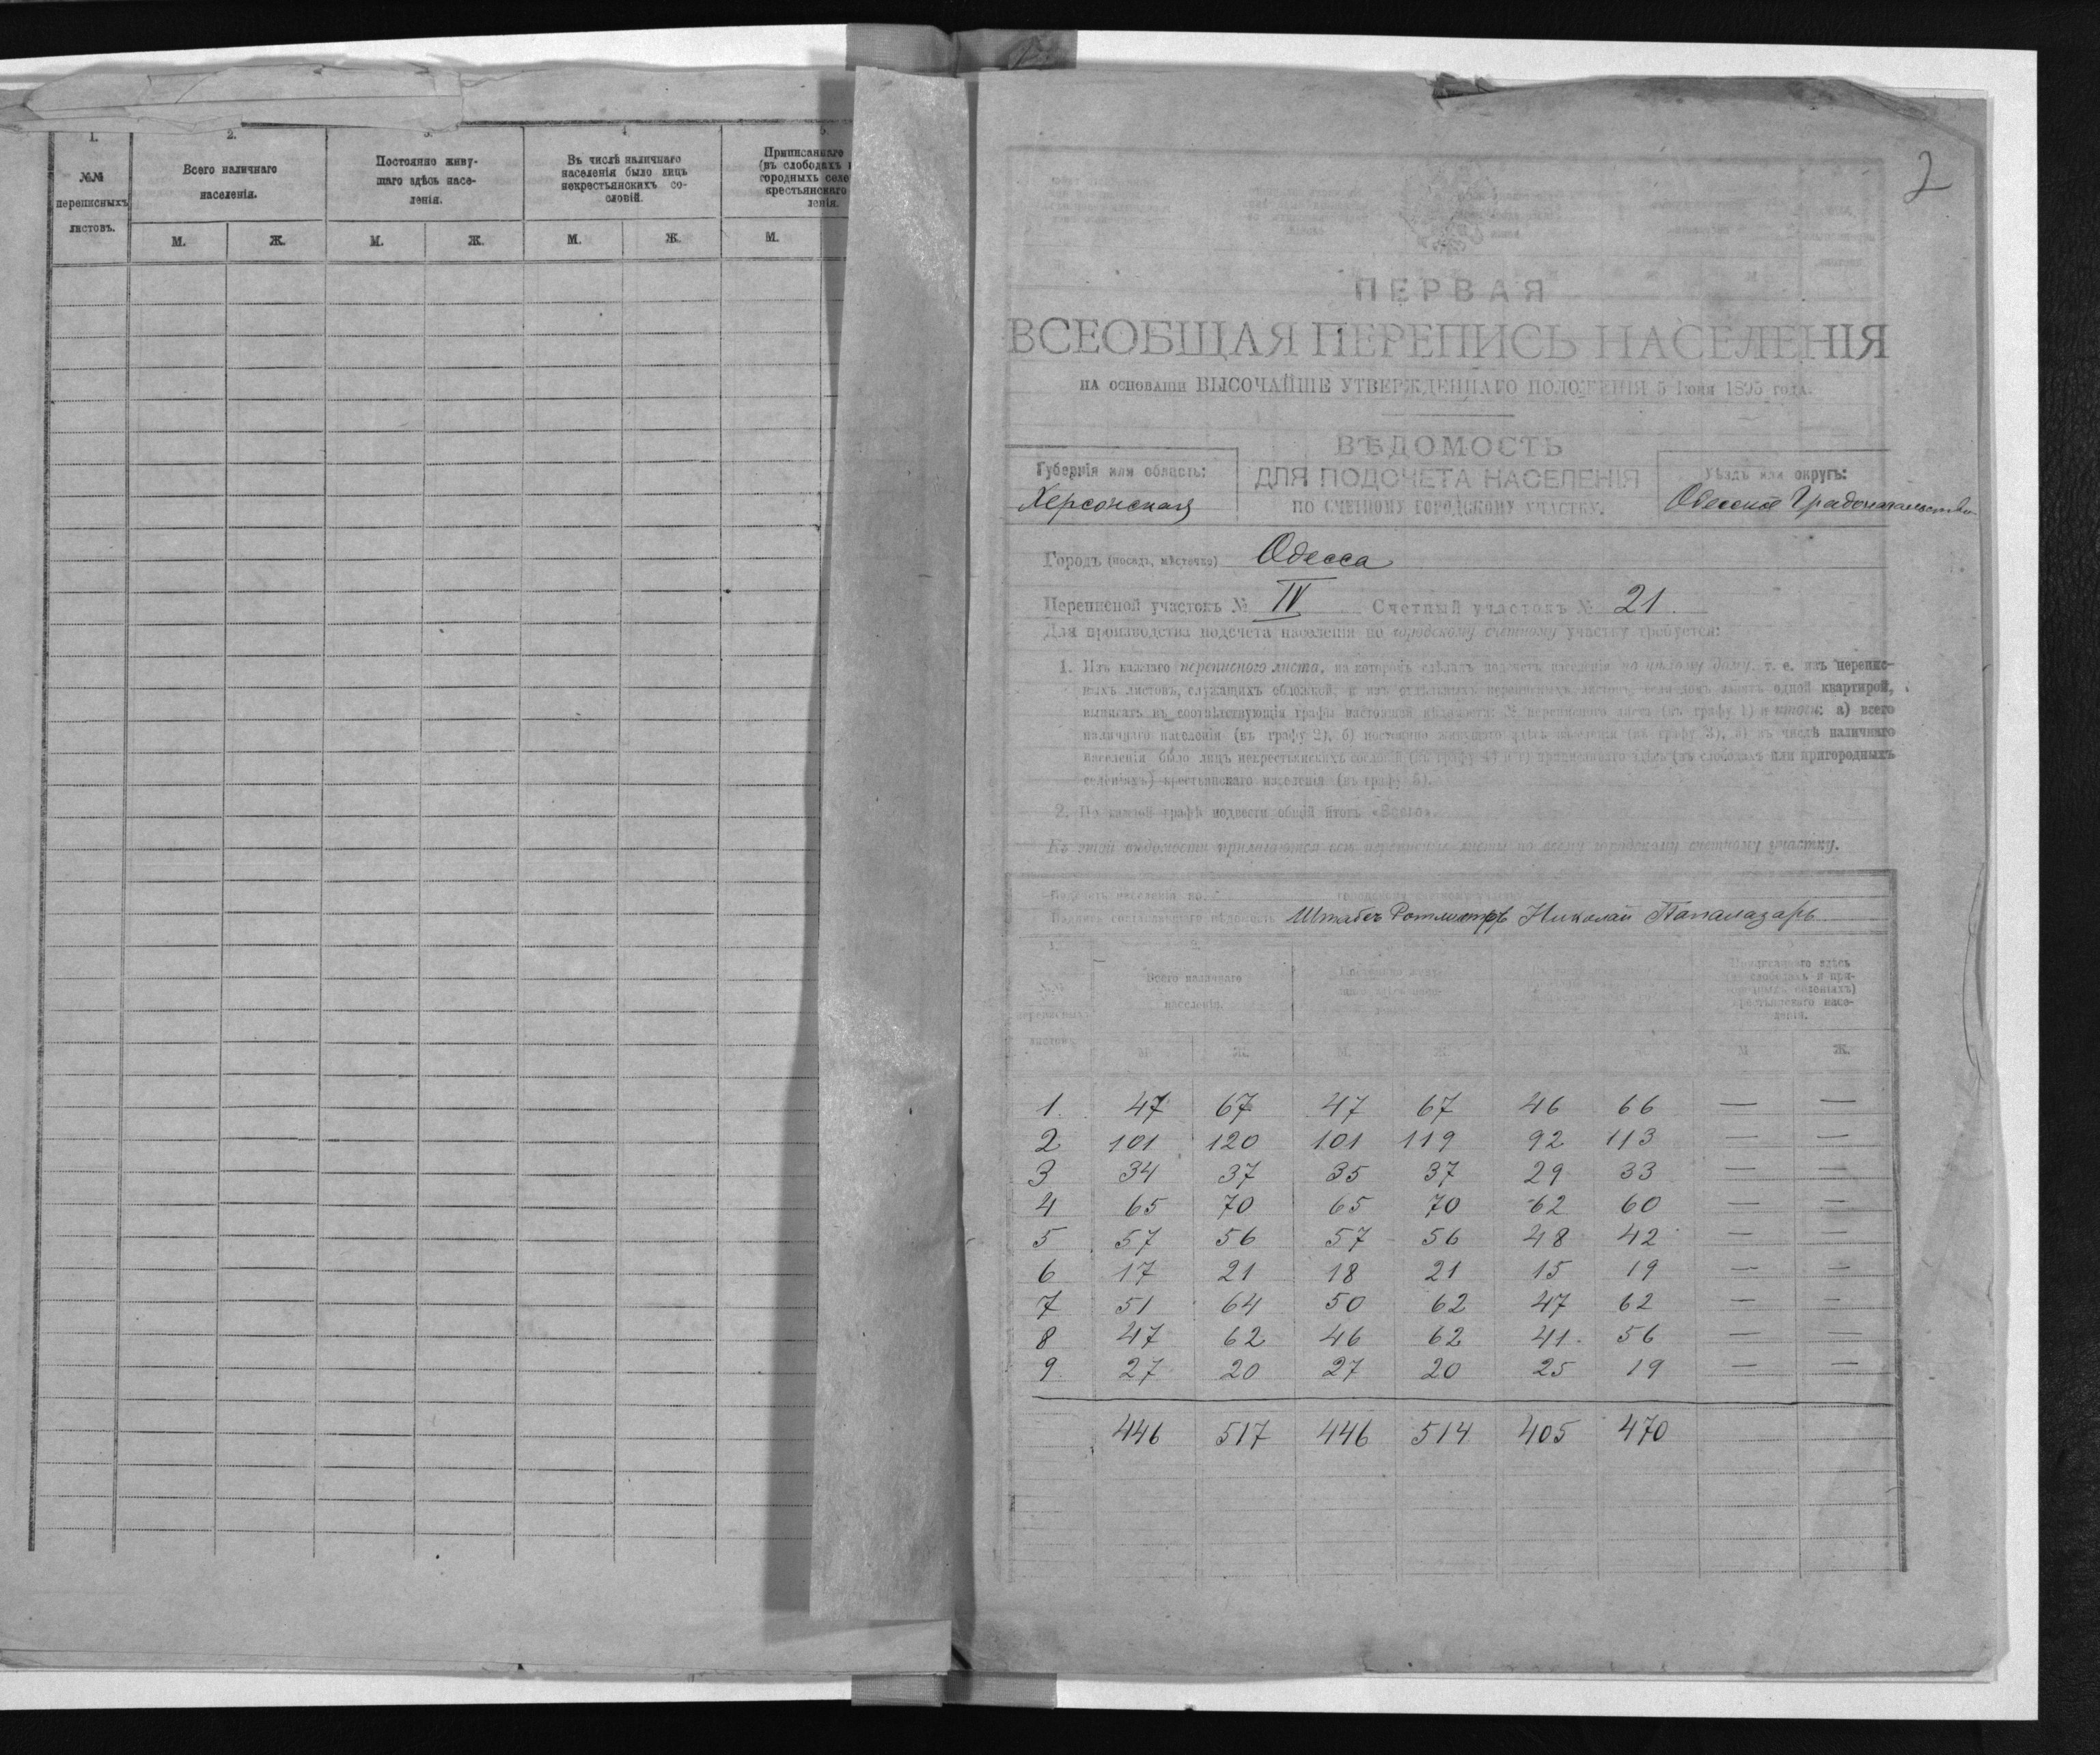 1. 2. 3. 4. 5.
№№ переписныхъ листовъ.
Всего наличнаго населенія.
Постоянно живу-
щаго здѣсь насе-
ленія.
Въ числѣ наличнаго
населенія было лицъ
некрестьянскихъ со-
словій.
Приписаннаго
(въ слободахъ
городныхъ селе
крестьянскаго
ленія.
М. Ж. М. Ж. М. Ж. М.
2
ПЕРВАЯ
ВСЕОБЩАЯ ПЕРЕПИСЬ НАСЕЛЕНІЯ
НА ОСНОВАНІИ ВЫСОЧАЙШЕ УТВЕРЖДЕННАГО ПОЛОЖЕНІЯ 5 Іюня 1895 года.
ВѢДОМОСТЬ
ДЛЯ ПОДСЧЕТА НАСЕЛЕНІЯ
ПО СЧЕТНОМУ ГОРОДСКОМУ УЧАСТКУ.
Губернія или область:
Херсонская
Уѣздъ или округъ:
Одесское Градоначальство
Городъ (посадъ, мѣстечко) Одесса
Переписной участокъ № IV Счетный участокъ № 21.
Для производства подсчета населенія по городскому счетному участку требуется:
1. Изъ каждаго переписного листа, на которомъ сдѣланъ подсчетъ населенія по цѣлому дому, т. е. изъ перепис-
ныхъ листовъ, служащихъ обложкой, и изъ отдѣльныхъ переписныхъ листовъ, если домъ занятъ одной квартирой,
выписать въ соотвѣтствующія графы настоящей вѣдомости: № переписного листа (въ графу 1) и итоги: а) всего
наличнаго населенія (въ графу 2), б) постоянно живущаго здѣсь населенія (въ графу 3), в) въ числѣ наличнаго
населенія было лицъ некрестьянскихъ сословій (въ графу 4) и г) приписаннаго здѣсь (въ слободахъ или пригородныхъ
селеніяхъ) крестьянскаго населенія (въ графу 5).
2. По каждой графѣ подвести общій итогъ «Всего».
Къ этой вѣдомости прилагаются всѣ переписные листы по всему городскому счетному участку.
Подпись составлявшаго вѣдомость Штабсъ Ротмистръ Николай Папалазарь
№№ переписныхъ листовъ
Всего наличнаго населенія.
Приписаннаго здѣсь
(въ слободахъ и при-
городныхъ селеніяхъ)
крестьянскаго насе-
ленія.
М. Ж. М. Ж. М Ж.
1. 47 67 47 67 46 66 — —
2 101 120 101 119 92 113 — —
3 34 37 35 37 29 33 — —
4 65 70 65 70 62 60 — —
5 57 56 57 56 48 42 — —
6 17 21 18 21 15 19 — —
7 51 64 50 62 47 62 — —
8 47 62 46 62 41 56 — —
9 27 20 27 20 25 19 — —
446 517 446 514 405 470